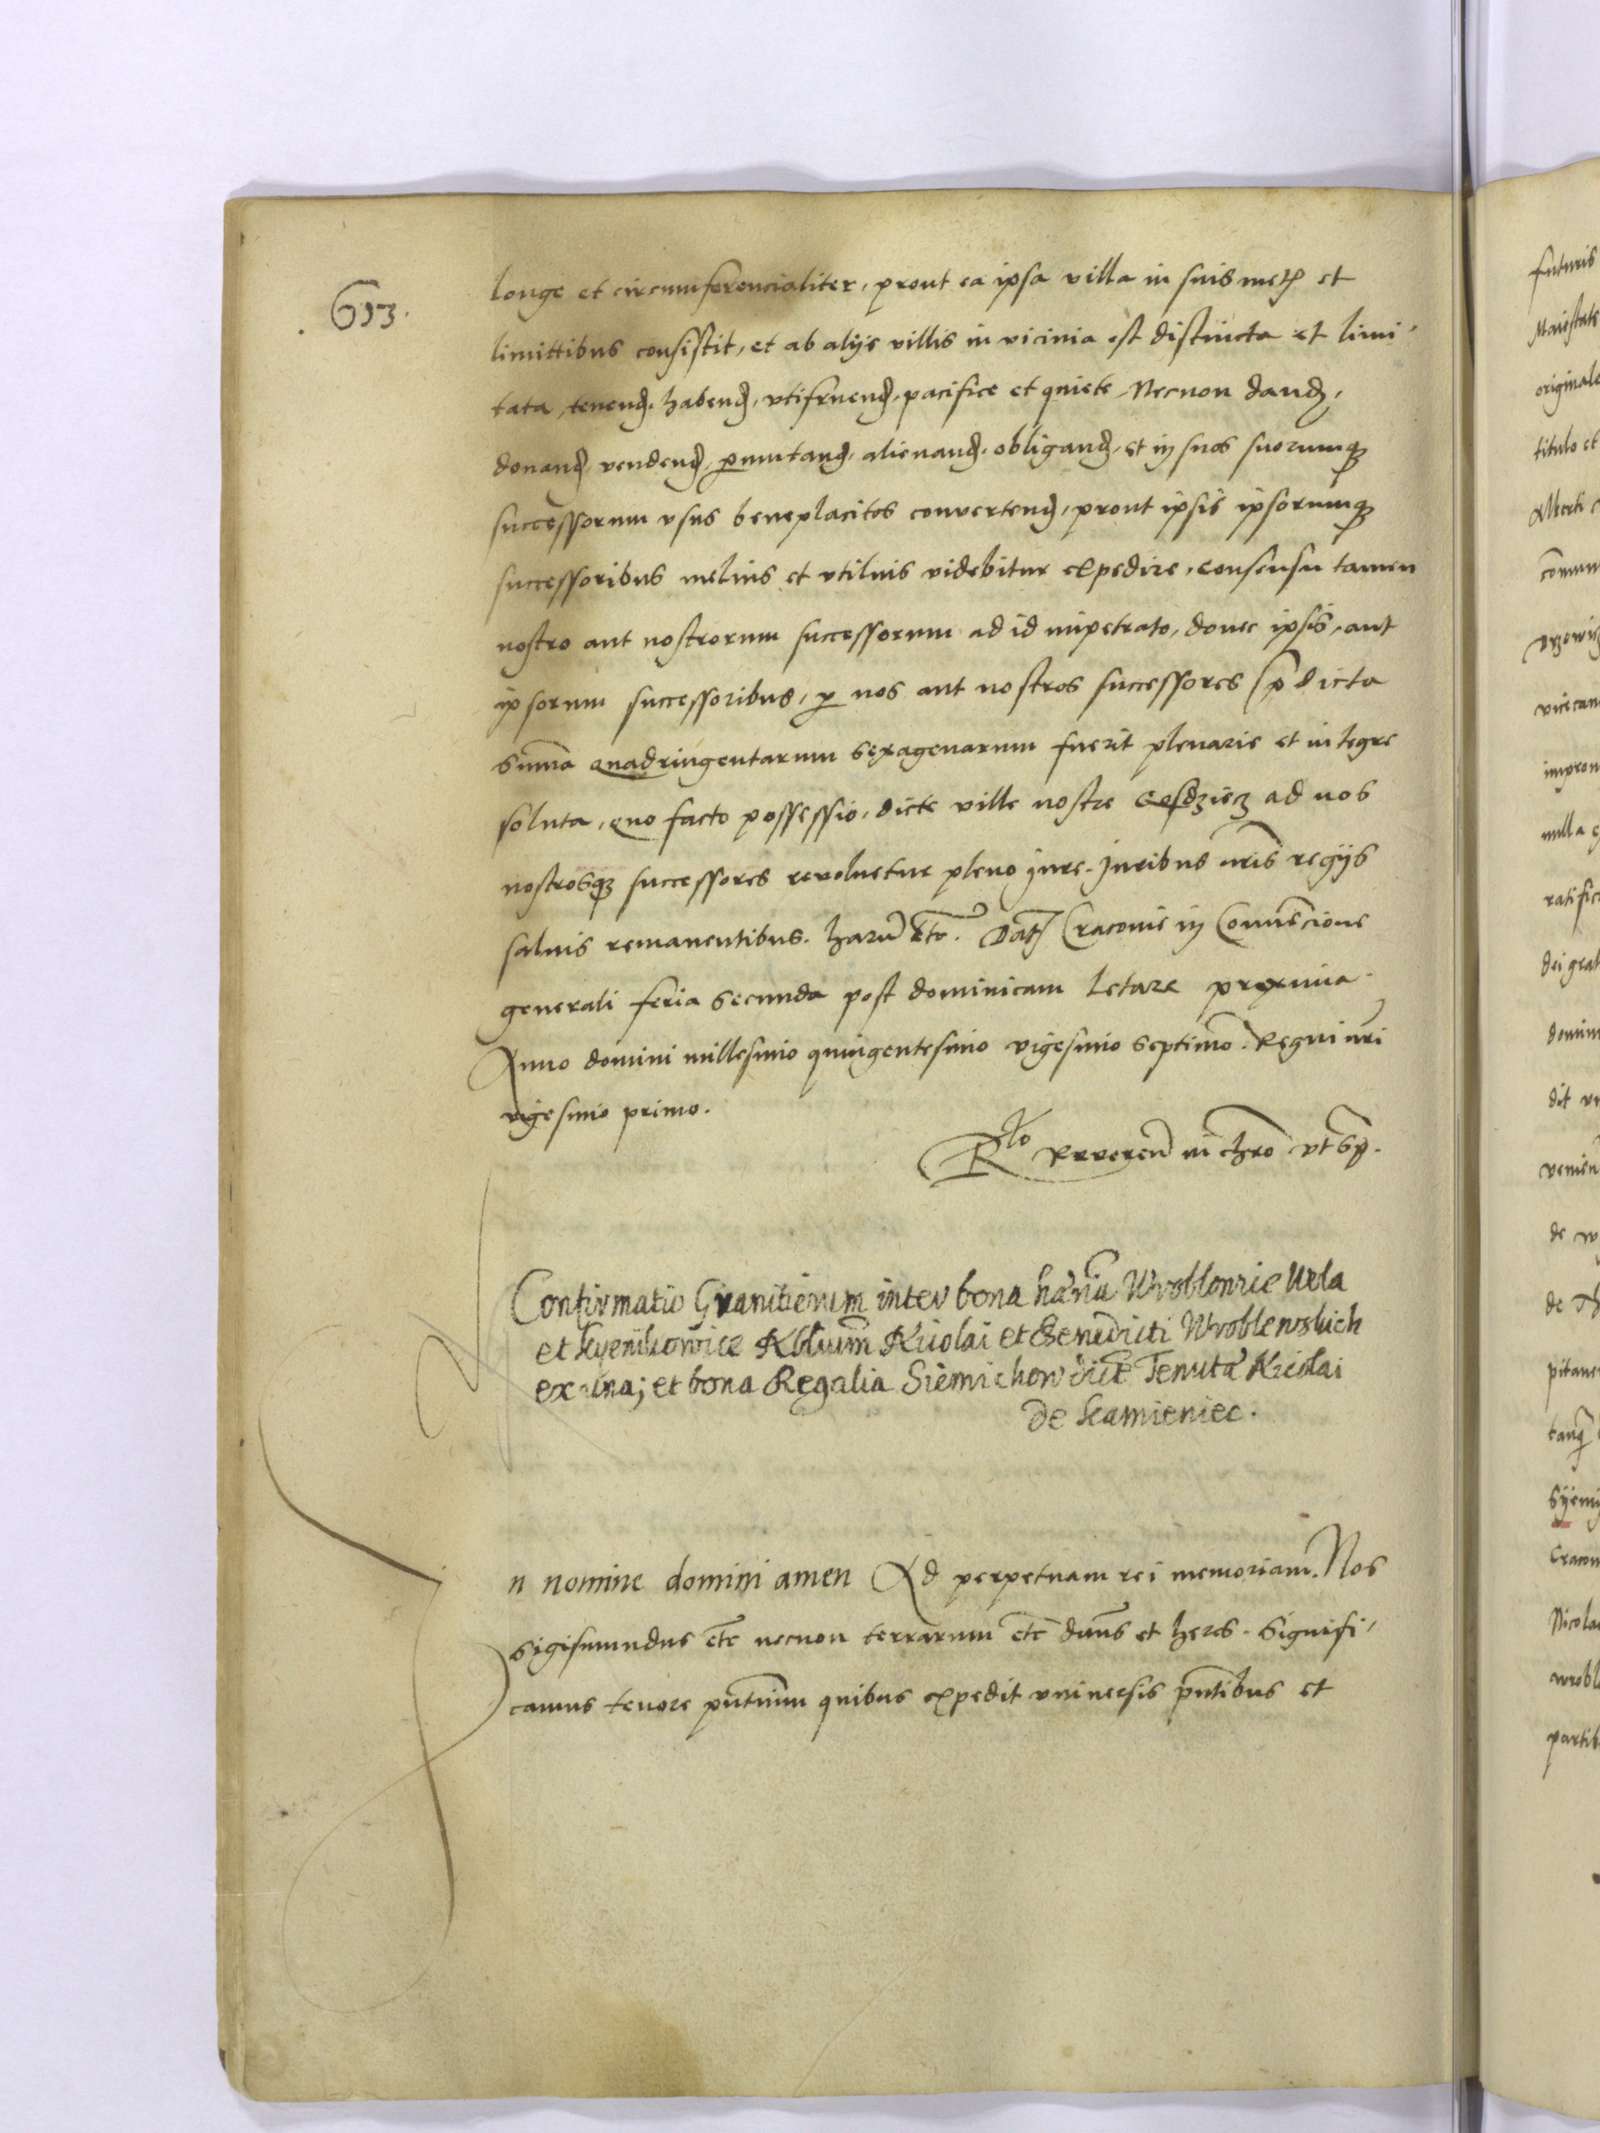 653.
longe et circumferencialiter, prout ea ipsa villa in suis met et
limittibus consistit, et ab alijs villis in vicinia est distincta et limi,
tata, tenend. habend, vtifruend, pacifice et quiete, Necnon dand,
donand, vendend, permutand, alienand, obligand, et in suos suorumque
successorum vsus beneplacitos convertend, prout ipsis ipsorumque
successoribus melius et vtilius videbitur expedire, consensu tamen
nostro aut nostrorum successorum ad id impetrato, donec ipsis, aut
ipsorum successoribus, per nos aut nostros successores predicta
summa quadringentarum sexagenarum fuerit plenarie et integre
soluta, quo facto possessio, dicte ville nostre ad nos
nostrosque successores revoluetur pleno jure. Juribus nris regijs
saluis remanentibus. harum etc. Dat Cracovie in Convencione
generali feria secunda post dominicam Letare proxima.
Anno domini millesimo quingentesimo vigesimo septimo. Regni nri
vigesimo primo.
Rlo Reveren in chro vt sup.
Confirmatio Granitierum inter bona Wroblowice Wela
et Nicolai et Benedicti Wroblewskich
ex una; et bona Regalia Siemichow dicte Tenuta Nicolai
de Kamieniec.
n nomine domini amen Ad perpetuam rei memoriam. Nos
Sigismundus etc necnon terrarum etc dnus et heres. Signifi,
camus tenore pntium quibus expedit vniuersis pntibus et
futuris
Maiestate
originale
titulo et
Alberti
comun
vicecan
nulla
ratific
dei grat
domin
dit
venien
de
de
pitane
Cracov
Nicola
wrobl
partib